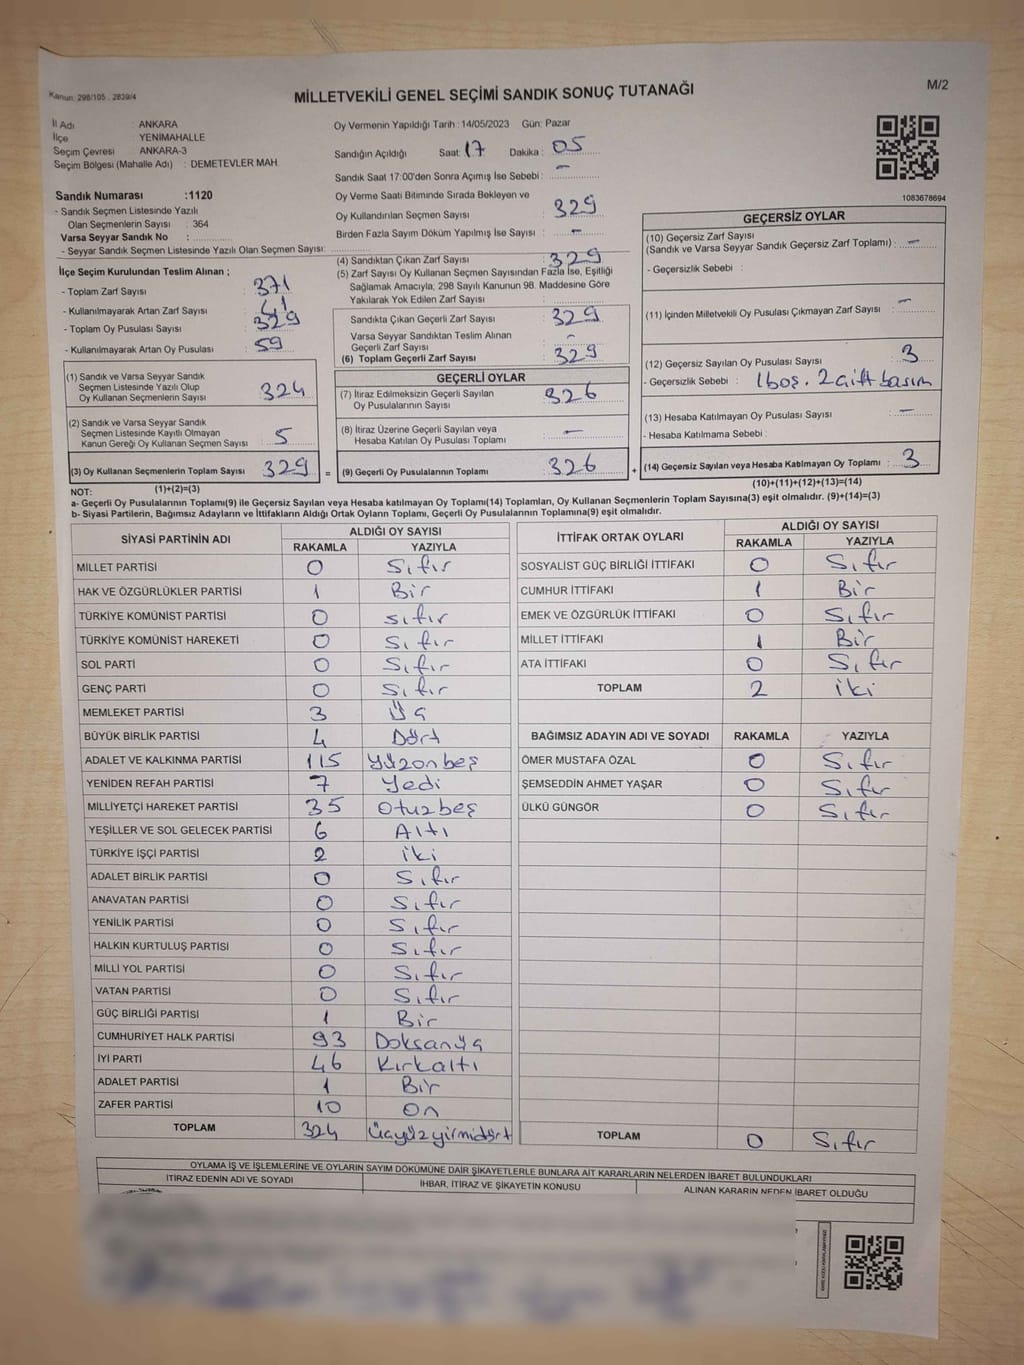 Kanun: 298/105 , 2839/4
MİLLETVEKİLİ GENEL SEÇİMİ SANDIK SONUÇ TUTANAĞI
M/2
İl Adı : ANKARA
İlçe : YENİMAHALLE
Seçim Çevresi : ANKARA-3
Seçim Bölgesi (Mahalle Adı) : DEMETEVLER MAH.
Sandık Numarası :1120
- Sandık Seçmen Listesinde Yazılı
Olan Seçmenlerin Sayısı : 364
Varsa Seyyar Sandık No :
- Seyyar Sandık Seçmen Listesinde Yazılı Olan Seçmen Sayısı:
İlçe Seçim Kurulundan Teslim Alınan ;
- Toplam Zarf Sayısı : 371
- Kullanılmayarak Artan Zarf Sayısı : 41
- Toplam Oy Pusulası Sayısı : 329
- Kullanılmayarak Artan Oy Pusulası : 59
(1) Sandık ve Varsa Seyyar Sandık
Seçmen Listesinde Yazılı Olup
Oy Kullanan Seçmenlerin Sayısı : 324
(2) Sandık ve Varsa Seyyar Sandık
Seçmen Listesinde Kayıtlı Olmayan
Kanun Gereği Oy Kullanan Seçmen Sayısı : 5
(3) Oy Kullanan Seçmenlerin Toplam Sayısı : 329
(1)+(2)=(3)
Oy Vermenin Yapıldığı Tarih : 14/05/2023 Gün: Pazar
Sandığın Açıldığı Saat: 17 Dakika : 05
Sandık Saat 17:00'den Sonra Açımış İse Sebebi : -
Oy Verme Saati Bitiminde Sırada Bekleyen ve
Oy Kullandırılan Seçmen Sayısı : 329
Birden Fazla Sayım Döküm Yapılmış İse Sayısı : -
(4) Sandıktan Çıkan Zarf Sayısı : 329
(5) Zarf Sayısı Oy Kullanan Seçmen Sayısından Fazla İse, Eşitliği
Sağlamak Amacıyla, 298 Sayılı Kanunun 98. Maddesine Göre
Yakılarak Yok Edilen Zarf Sayısı :
Sandıkta Çıkan Geçerli Zarf Sayısı : 329
Varsa Seyyar Sandıktan Teslim Alınan
Geçerli Zarf Sayısı : -
(6) Toplam Geçerli Zarf Sayısı : 329
GEÇERLİ OYLAR
(7) İtiraz Edilmeksizin Geçerli Sayılan
Oy Pusulalarının Sayısı : 326
(8) İtiraz Üzerine Geçerli Sayılan veya
Hesaba Katılan Oy Pusulası Toplamı : -
= (9) Geçerli Oy Pusulalarının Toplamı : 326
1083678694
GEÇERSİZ OYLAR
(10) Geçersiz Zarf Sayısı
(Sandık ve Varsa Seyyar Sandık Geçersiz Zarf Toplamı) : -
- Geçersizlik Sebebi :
(11) İçinden Milletvekili Oy Pusulası Çıkmayan Zarf Sayısı : -
(12) Geçersiz Sayılan Oy Pusulası Sayısı : 3
- Geçersizlik Sebebi : 1 boş. 2 çift basım
(13) Hesaba Katılmayan Oy Pusulası Sayısı : -
- Hesaba Katılmama Sebebi :
+ (14) Geçersiz Sayılan veya Hesaba Katılmayan Oy Toplamı : 3
(10)+(11)+(12)+(13)=(14)
NOT:
a- Geçerli Oy Pusulalarının Toplamı(9) ile Geçersiz Sayılan veya Hesaba katılmayan Oy Toplamı(14) Toplamları, Oy Kullanan Seçmenlerin Toplam Sayısına(3) eşit olmalıdır. (9)+(14)=(3)
b- Siyasi Partilerin, Bağımsız Adayların ve İttifakların Aldığı Ortak Oyların Toplamı, Geçerli Oy Pusulalarının Toplamına(9) eşit olmalıdır.
SİYASİ PARTİNİN ADI ALDIĞI OY SAYISI
RAKAMLA YAZIYLA
MİLLET PARTİSİ 0 Sıfır
HAK VE ÖZGÜRLÜKLER PARTİSİ 1 Bir
TÜRKİYE KOMÜNİST PARTİSİ 0 sıfır
TÜRKİYE KOMÜNİST HAREKETİ 0 Sıfır
SOL PARTİ 0 Sıfır
GENÇ PARTİ 0 Sıfır
MEMLEKET PARTİSİ 3 Üç
BÜYÜK BİRLİK PARTİSİ 4 Dört
ADALET VE KALKINMA PARTİSİ 115 Yüzonbeş
YENİDEN REFAH PARTİSİ 7 Yedi
MİLLİYETÇİ HAREKET PARTİSİ 35 Otuzbeş
YEŞİLLER VE SOL GELECEK PARTİSİ 6 Altı
TÜRKİYE İŞÇİ PARTİSİ 2 iki
ADALET BİRLİK PARTİSİ 0 Sıfır
ANAVATAN PARTİSİ 0 Sıfır
YENİLİK PARTİSİ 0 Sıfır
HALKIN KURTULUŞ PARTİSİ 0 Sıfır
MİLLİ YOL PARTİSİ 0 Sıfır
VATAN PARTİSİ 0 Sıfır
GÜÇ BİRLİĞİ PARTİSİ 1 Bir
CUMHURİYET HALK PARTİSİ 93 Doksanüç
İYİ PARTİ 46 Kırkaltı
ADALET PARTİSİ 1 Bir
ZAFER PARTİSİ 10 On
TOPLAM 324 Üçyüzyirmidört
İTTİFAK ORTAK OYLARI ALDIĞI OY SAYISI
RAKAMLA YAZIYLA
SOSYALİST GÜÇ BİRLİĞİ İTTİFAKI 0 Sıfır
CUMHUR İTTİFAKI 1 Bir
EMEK VE ÖZGÜRLÜK İTTİFAKI 0 Sıfır
MİLLET İTTİFAKI 1 Bir
ATA İTTİFAKI 0 Sıfır
TOPLAM 2 iki
BAĞIMSIZ ADAYIN ADI VE SOYADI RAKAMLA YAZIYLA
ÖMER MUSTAFA ÖZAL 0 Sıfır
ŞEMSEDDİN AHMET YAŞAR 0 Sıfır
ÜLKÜ GÜNGÖR 0 Sıfır
TOPLAM 0 Sıfır
OYLAMA İŞ VE İŞLEMLERİNE VE OYLARIN SAYIM DÖKÜMÜNE DAİR ŞİKAYETLERLE BUNLARA AİT KARARLARIN NELERDEN İBARET BULUNDUKLARI
İTİRAZ EDENİN ADI VE SOYADI İHBAR, İTİRAZ VE ŞİKAYETİN KONUSU ALINAN KARARIN NEDEN İBARET OLDUĞU